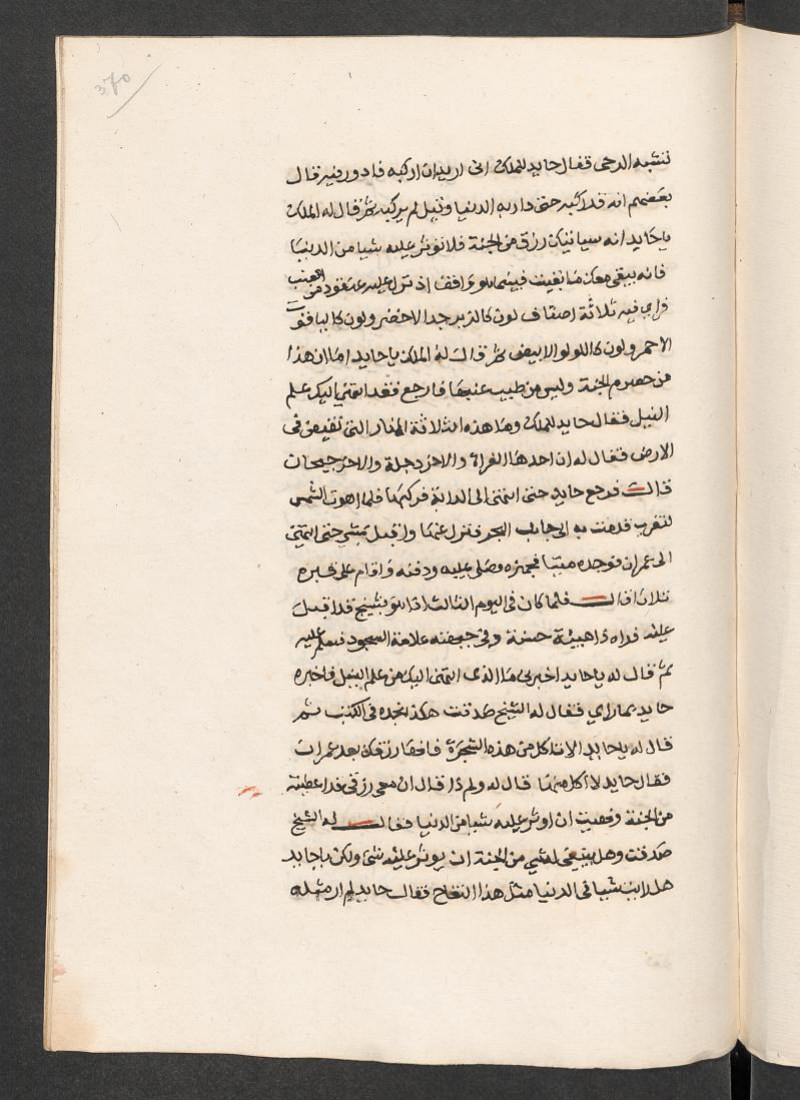 370
تشبه الرحى فقال حايد للملك انى اريد ان اركبه فادور فيه قال
بعضهم انه قد ركبه حتى دار به الدنيا وقيل لم يركبه ثم قال له الملك
ياحايد انه سياتيك رزق من الجنة فلا توثر عليه شيا من الدنيا
فانه يبقى معك ما بقيت فبينما هو واقف اذ نزل عليه عنقود من العنب
فراى فيه ثلاثة اصناف لون كالزبرجد الاخضر ولون كالياقوت
الاحمر ولون كاللولو الابيض ثم قال له الملك ياحايد اما ان هذا
من حصرم الجنة وليس من طيب عنبها فارجع فقد انتهى اليك علم
النيل فقال حايد للملك وما هذه الثلاثة انهار التى تفيض فى
الارض فقال له ان احدها الفراة والاخر دجلة والاخر جيحان
قال فرجع حايد حتى انتهى الى الدابة فركبها فلما اهوت الشمس
لتغرب قدمت به الى جانب البحر فنزل عنها واقبل يمشى حتى انتهى
الى عمران فوجده ميتا فجهزه وصلى عليه ودفنه واقام على قبره
ثلاثا قال فلما كان فى اليوم الثالث اذا هو بشيخ قد اقبل
عليه فراه ذا هيئة حسنة وفى جبهته علامة السجود فسلم عليه
ثم قال له ياحايد اخبرنى ما الذى انتهى اليك من علم النيل فاخبره
حايد بما راى فقال له الشيخ صدقت هكذا نجده فى الكتب ثم
قال له ياحايد الا تاكل من هذه الشجرة فانها رزقك بعد عمران
فقال حايد لا اكل منها قال له ولم ذا قال ان معى رزقى قد اعطيته
من الجنة ونهيت ان اوثر عليه شيا من الدنيا فقال له الشيخ
صدقت وهل ينبغى لشى من الجنة ان يوثر عليه شى ولكن ياحايد
هل رايت شيا فى الدنيا مثل هذا التفاح فقال حايد لم ار مثله